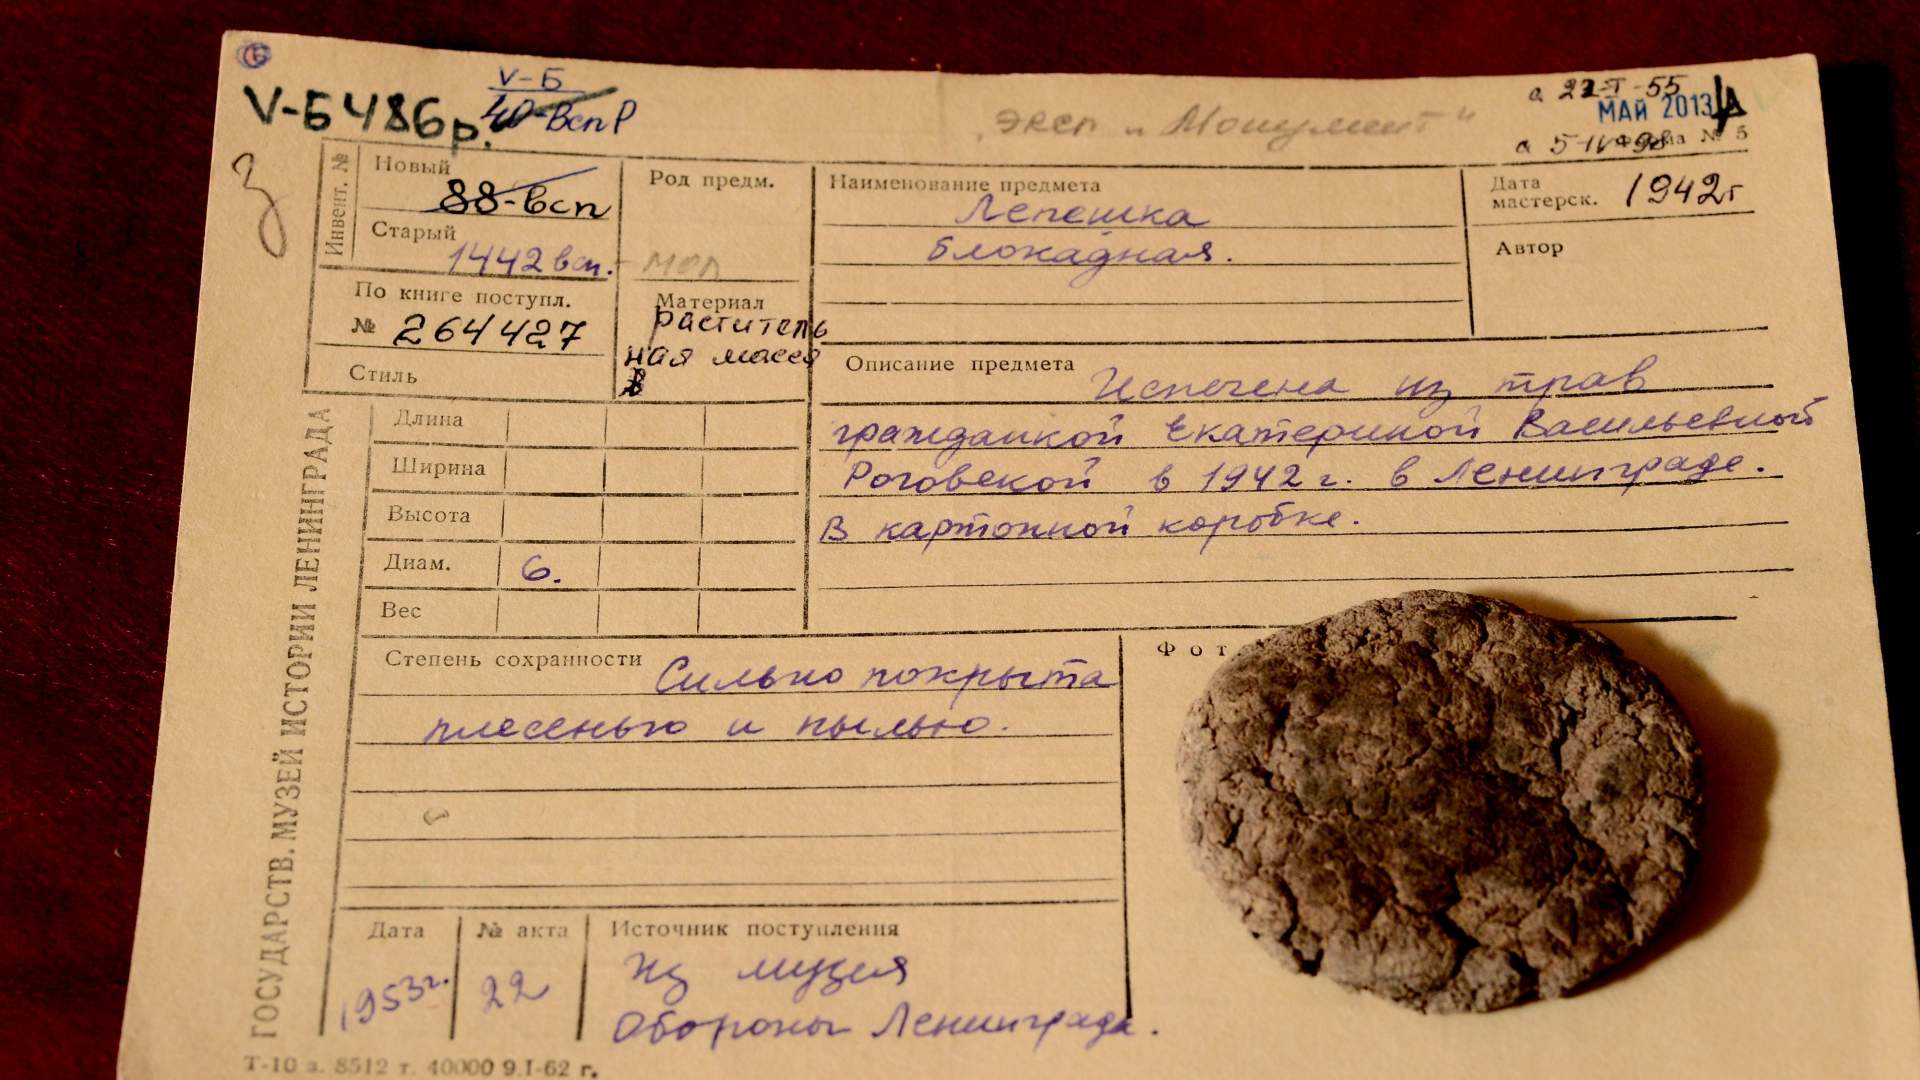 V-Б 486 р.
V-Б
40-Всп Р
эксп. "Монумент"
МАЙ 2013
№ 5
Инвент. №
Новый
88-всп
Старый
1442 всп.
По книге поступл.
№ 264427
Стиль
Род предм.
Материал
раститель
ная масса
Наименование предмета
Лепешка
блокадная.
Дата
мастерск. 1942г
Автор
Описание предмета
Испечена из трав
гражданкой Екатериной Васильевной
Роговской в 1942 г. в Ленинграде.
В картонной коробке.
Длина
Ширина
Высота
Диам. 6.
Вес
Степень сохранности
Сильно покрыта
плесенью и пылью.
Фот
Дата
1953г.
№ акта
22
Источник поступления
Из музея
Обороны Ленинграда.
ГОСУДАРСТВ. МУЗЕЙ ИСТОРИИ ЛЕНИНГРАДА
Т-10 з. 8512 т. 40000 9.I-62 г.